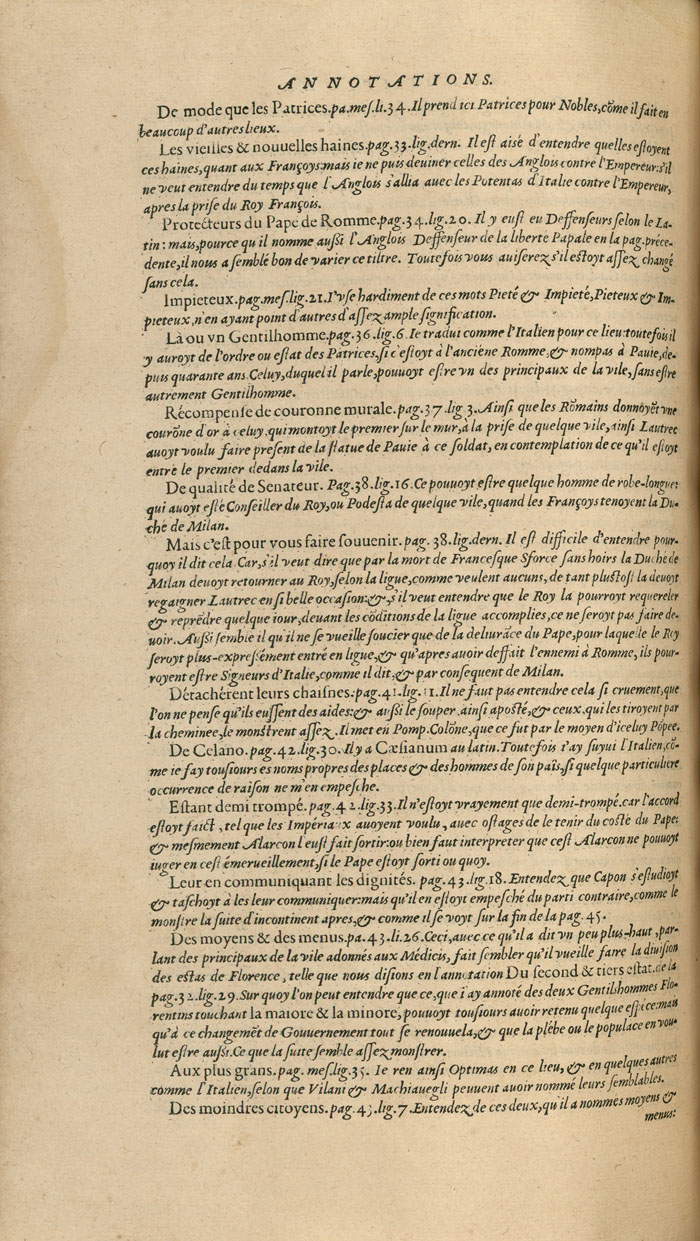 ANNOTATIONS.
De mode que les Patrices.pa.meſ.li.34.Il prend ici Patrices pour Nobles,cõme il fait en
beaucoup d'autres lieux.
Les vieilles & nouuelles haines.pag.33.lig.dern. Il eſt aisé d'entendre quelles eſtoyent
ces haines,quant aux Françoys:mais ie ne puis deuiner celles des Anglois contre l'Empereur:s'il
ne veut entendre du temps que l'Anglois s'allia auec les Potentas d'Italie contre l'Empereur,
apres la priſe du Roy François.
Protecteurs du Pape de Romme.pag.34.lig.20. Il y euſt eu Deffenſeurs ſelon le La-
tin: mais,pource qu'il nomme außi l'Anglois Deffenſeur de la liberté Papale en la pag.préce-
dente,il nous a ſemblé bon de varier ce tiltre. Toutefois vous auiſerez s'il eſtoyt aſſez changé
ſans cela.
Impieteux.pag.meſ.lig.21.I'vſe hardiment de ces mots Pieté & Impieté,Pieteux & Im-
pieteux,n'en ayant point d'autres d'aſſez ample ſignification.
Là ou vn Gentilhomme.pag.36.lig.6.Ie tradui comme l'Italien pour ce lieu:toutefois il
y auroyt de l'ordre ou eſtat des Patrices,ſi c'eſtoyt à l'anciéne Romme,& nompas à Pauie,de-
puis quarante ans.Celuy,duquel il parle,pouuoyt eſtre vn des principaux de la vile,ſans eſtre
autrement Gentilhomme.
Récompenſe de couronne murale.pag.37.lig 3.Ainſi que les Rõmains donnoyẽt vne
courõne d'or à celuy,qui montoyt le premier ſur le mur,à la priſe de quelque vile,ainſi Lautrec
auoyt voulu faire preſent de la ſtatue de Pauie à ce ſoldat,en contemplation de ce qu'il eſtoyt
entré le premier dedans la vile.
De qualité de Senateur. Pag.38.lig.16.Ce pouuoyt eſtre quelque homme de robe-longue:
qui auoyt eſté Conſeiller du Roy,ou Podeſta de quelque vile,quand les Françoys tenoyent la Du-
ché de Milan.
Mais c'eſt pour vous faire ſouuenir.pag. 38.lig.dern. Il eſt difficile d'entendre pour-
quoy il dit cela.Car,s'il veut dire que par la mort de Franceſque Sforce ſans hoirs la Duché de
Milan deuoyt retourner au Roy,ſelon la ligue,comme veulent aucuns,de tant pluſtoſt la deuoyt
regaigner Lautrec en ſi belle occaſion:&,s'il veut entendre que le Roy la pourroyt requereler
& reprẽdre quelque iour,deuant les cõditions de la ligue accomplies,ce ne ſeroyt pas faire de-
uoir.Außi ſemble il qu'il ne ſe vueille ſoucier que de la deliurãce du Pape,pour laquelle le Roy
ſeroyt plus-expreſſément entré en ligue,& qu'apres auoir deffait l'ennemi à Romme,ils pour-
royent eſtre Signeurs d'Italie,comme il dit,& par conſequent de Milan.
Détachérent leurs chaiſnes.pag.41.lig.11.Il ne faut pas entendre cela ſi cruement,que
l'on ne penſe qu'ils euſſent des aides:& außi le ſouper ainſi apoſté,& ceux,qui les tiroyent par
la cheminee,le monſtrent aſſez.Il met en Pomp.Colõne,que ce fut par le moyen d'iceluy Põpee.
De Celano.pag.42.lig.30.Il y a Cæſianum au latin.Toutefois i'ay ſuyui l'Italien,cõ-
me ie fay touſiours es noms propres des places & des hommes de ſon païs,ſi quelque particuliere
occurrence de raiſon ne m'en empeſche.
Eſtant demi trompé.pag.42.lig.33.Il n'eſtoyt vrayement que demi-trompé.car l'accord
eſtoyt faict, tel que les Impériaux auoyent voulu, auec oſtages de le tenir du coſté du Pape:
& meſmement Alarcon l'euſt fait ſortir:ou bien faut interpreter que ceſt Alarcon ne pouuoyt
iuger en ceſt émerueillement,ſi le Pape eſtoyt ſorti ou quoy.
Leur en communiquant les dignités. pag.43.lig.18. Entendez que Capon s'eſtudioyt
& taſchoyt à les leur communiquer:mais qu'il en eſtoyt empeſché du parti contraire,comme le
monſtre la ſuite d'incontinent apres,& comme il ſe voyt ſur la fin de la pag.45.
Des moyens & des menus.pa.43.li.26.Ceci,auec ce qu'il a dit vn peu plus-haut,par-
lant des principaux de la vile adonnés aux Médicis,fait ſembler qu'il vueille faire la diuiſion
des eſtas de Florence, telle que nous diſions en l'annotation Du ſecond & tiers eſtat.de la
pag.32.lig.29.Sur quoy l'on peut entendre que ce,que i'ay annoté des deux Gentilshommes Flo-
rentins touchant la maiore & la minore,pouuoyt touſiours auoir retenu quelque eſpèce:mais
qu'à ce changemẽt de Gouuernement tout ſe renouuela,& que la plèbe ou le populace en vou-
lut eſtre außi.Ce que la ſuite ſemble aſſez monſtrer.
Aux plus grans.pag. meſ.lig.35. Ie ren ainſi Optimas en ce lieu, & en quelques autres
comme l'Italien,ſelon que Vilani & Machiauegli peuuent auoir nommé leurs ſemblables.
Des moindres citoyens.pag.45.lig.7.Entendez de ces deux,qu'il a nommés moyens &
menus: